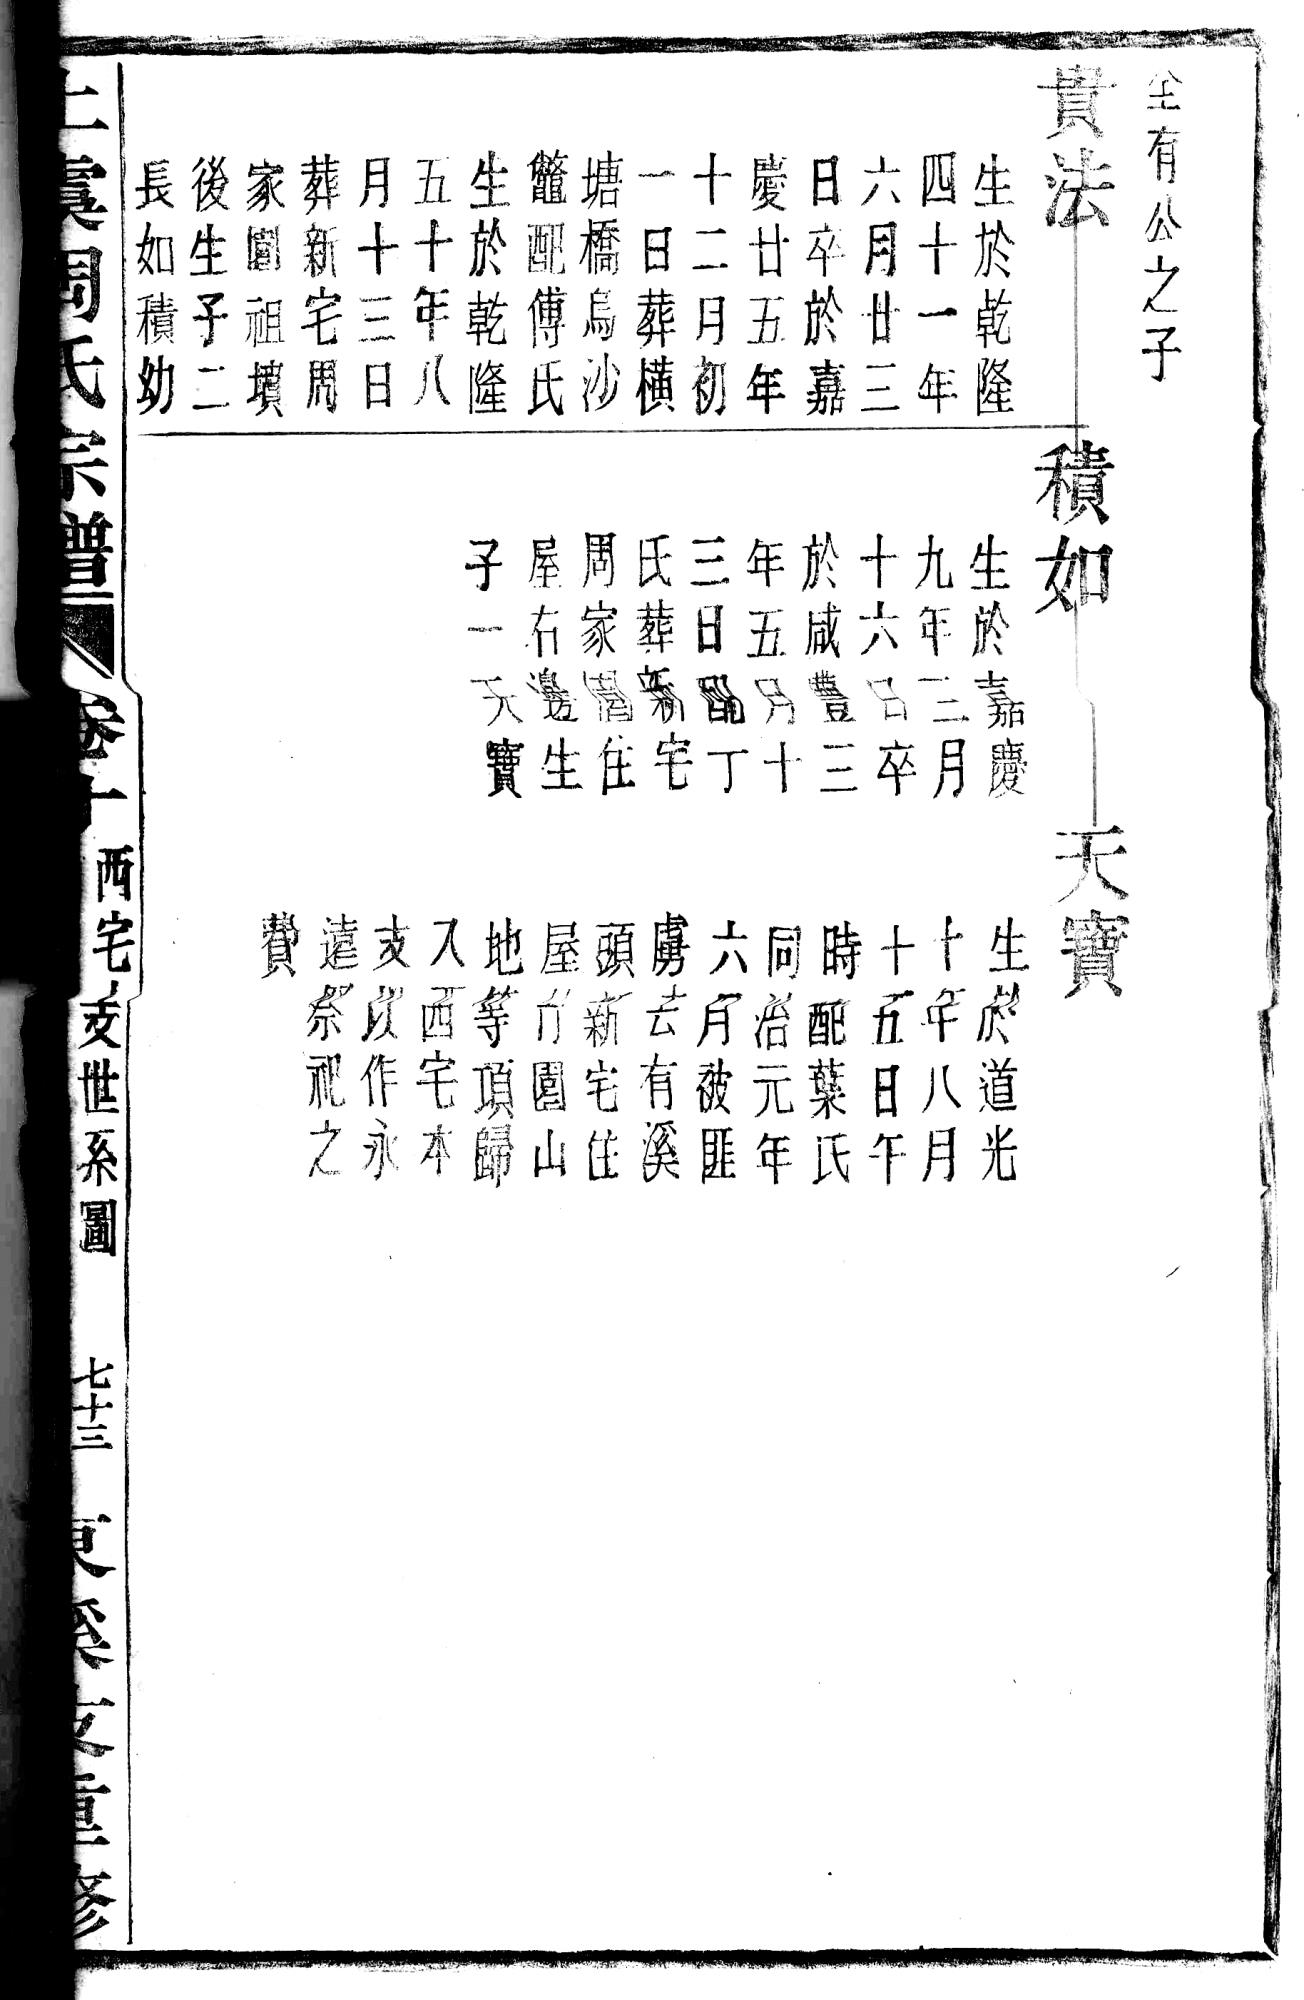 全有公之子
貴法
生於乾隆
四十一年
六月廿三
日卒於嘉
慶廿五年
十二月初
一日葬橫
塘橋烏沙
配傅氏
生於乾隆
五十年八
月十三日
葬新宅周
家園祖墳
後生子二
長如積幼
積如
生於嘉慶
九年三月
十六日卒
於咸豐三
年五月十
三日配丁
氏葬新宅
周家園住
屋右邊生
子一天寶
天寶
生於道光
十年八月
十五日午
時配葉氏
同治元年
六月被匪
虜去有溪
頭新宅住
屋竹園山
地等項歸
入西宅本
支以作永
遠祭祀之
費
上虞周氏宗譜
卷十
西宅支世系圖
七十三
東溪支重修